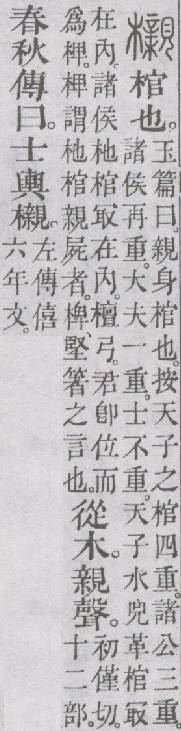 櫬棺也。
玉篇曰。親身棺也。按天子之棺四重。諸公三重。
諸侯再重。大夫一重。士不重。天子水兕革棺冣
在內。諸侯杝棺冣在內。檀弓。君卽位而
爲椑。椑謂杝棺親屍者。椑、堅箸之言也。
從木。親聲。
初僅切。
十二部。
春秋傳曰。士輿櫬。
左傳僖
六年文。